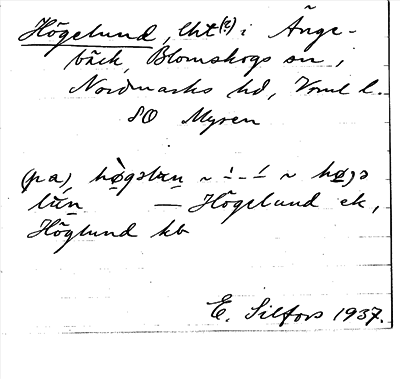 Högelund, lht(?) i Änge-
bäck, Blomskogs sn,
Nordmarks hd, Vrml l.
80 Myren
(pa) hø̀gəlɯn ~ ⸌-⸍ ~ høgə
lɯ́n — Högelund ek,
Höglund kb
E. Silfors 1937.